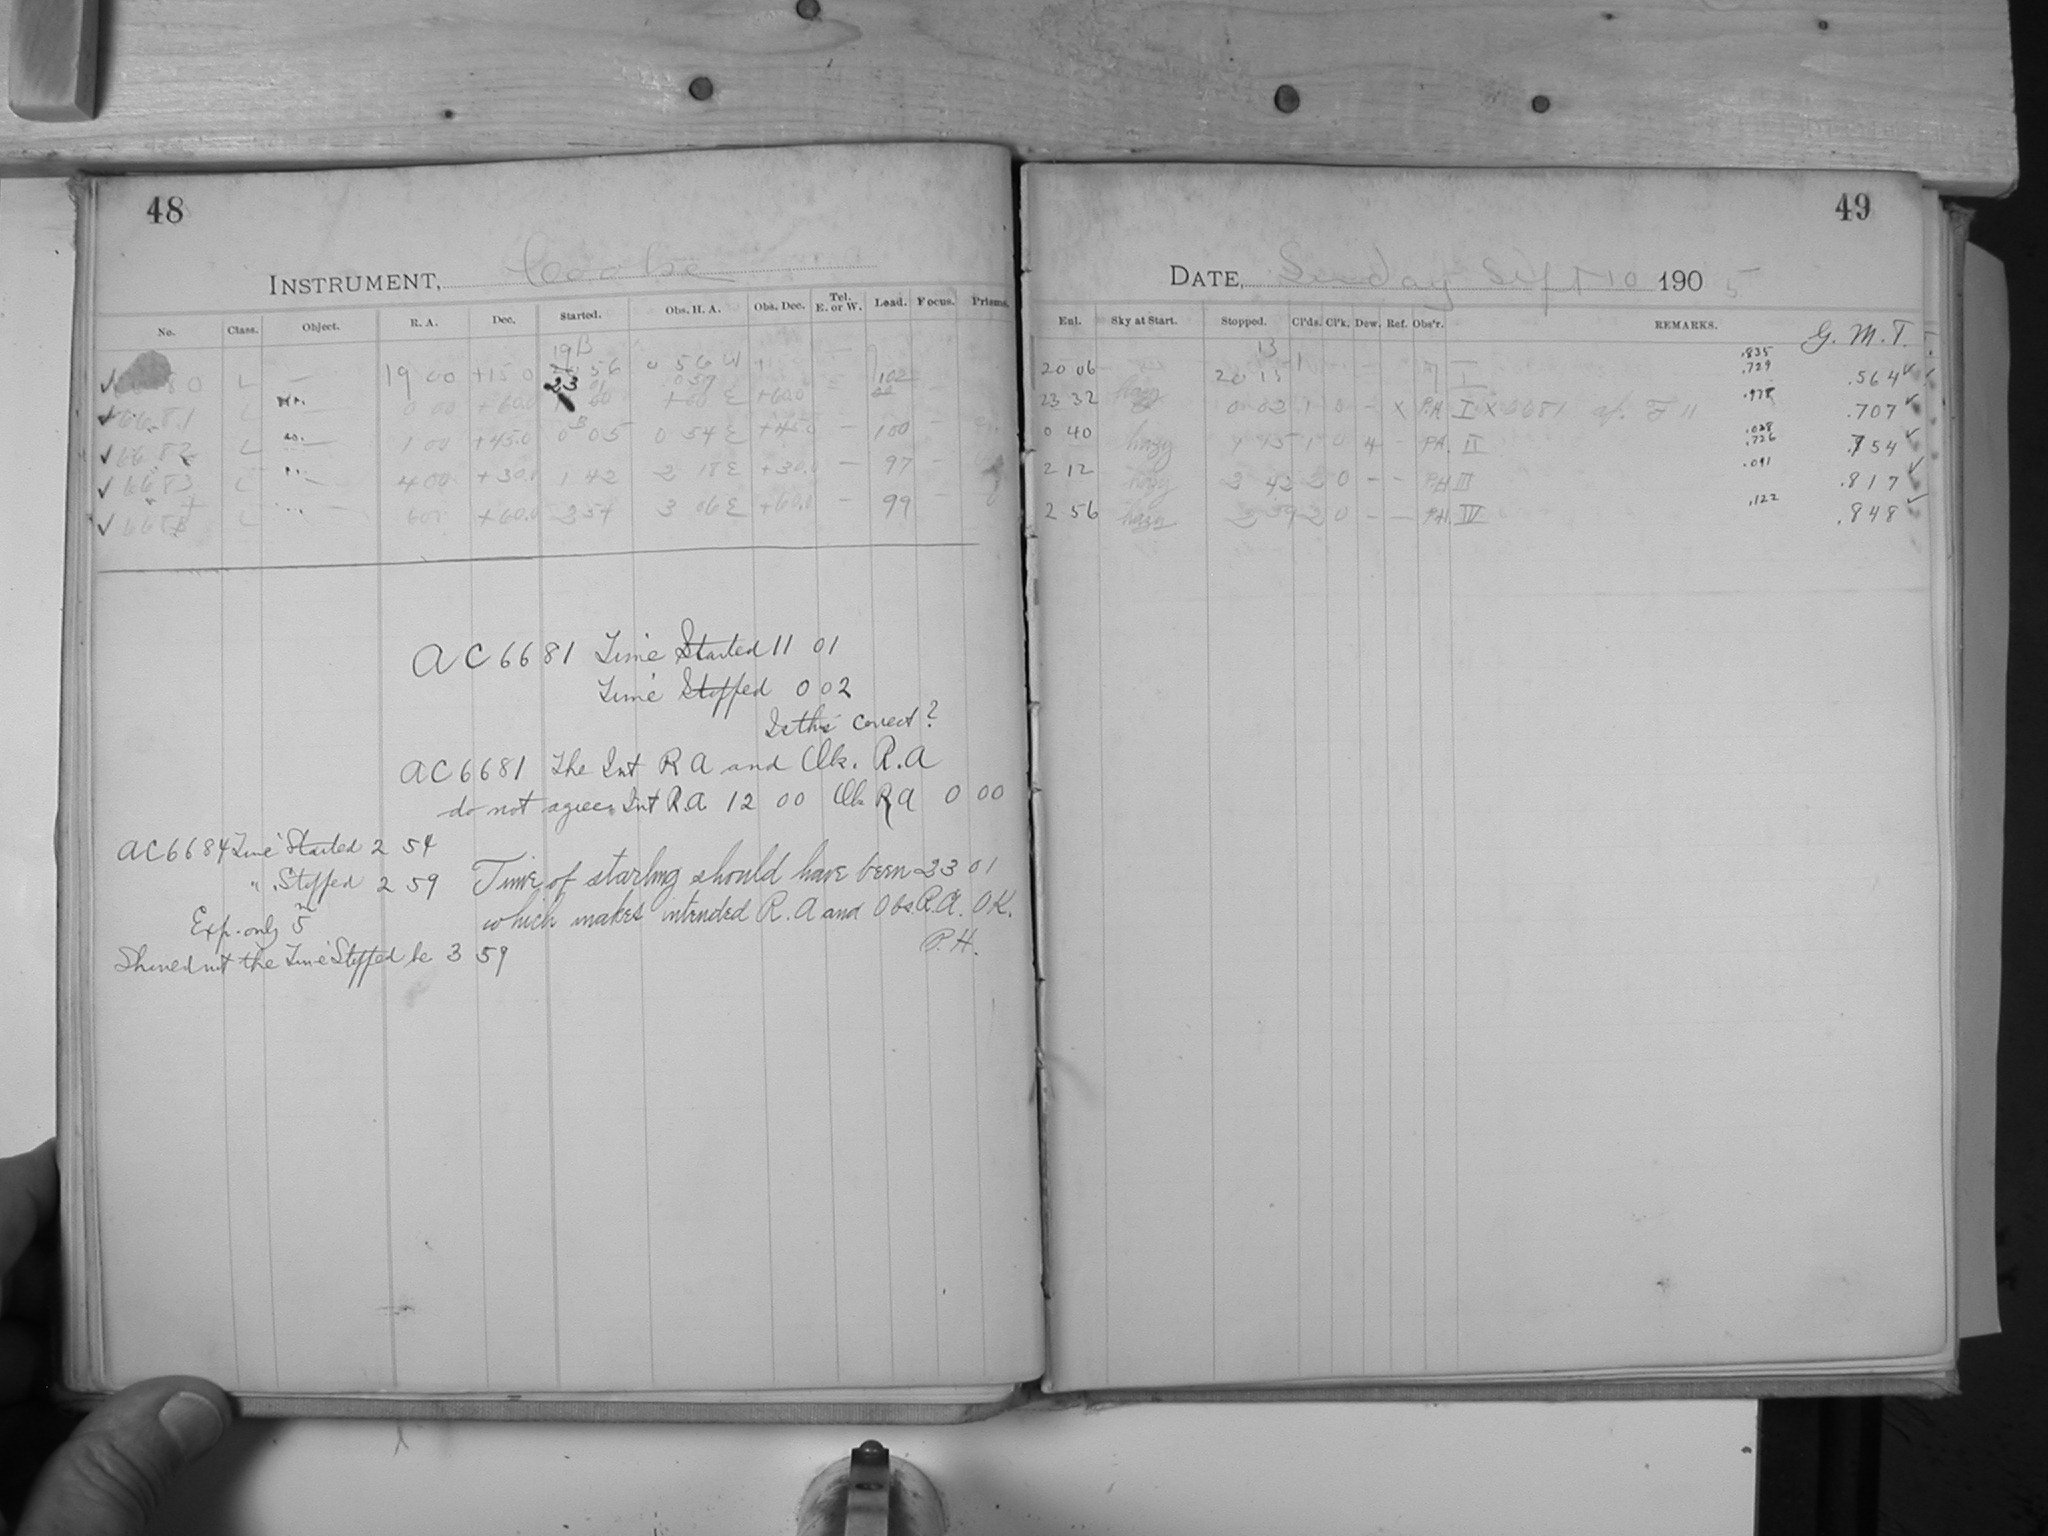 48
INSTRUMENT, Cooke
No. Class. Object. R. A. Dec. Started. Obs. H. A. Obs. Dec. Tel. E. or W. Load. Focus. Prisms.
L — 19 00 +15 0 56 0 56 W 102
6681 0 00 +60.0 23 01 0 59 +60.0
6682 L 1 00 +45.0 0 05 0 54 E +45.0 — 100 -
6683 L 4 00 +30.0 1 42 2 18 E +30.0 — 97 -
L +60.0 2 54 3 06 E +60.0 — 99 -
AC 6681 Time Started 11 01
Time Stopped 0 02
Is this correct?
AC 6681 The Int R A and Ob. R.A
do not agree. Int R.A 12 00 Ob RA 0 00
AC 6684 Time Started 2 54
" Stopped 2 59
Exp. only 5m
Should not the Time Stopped be 3 59
Time of starting should have been 23 01
which makes intended R. A and Obs. R.A. OK.
P. H.
49
DATE, Sunday Sept 10 1905
Enl. Sky at Start. Stopped. Cl'ds. Cl'k. Dew. Ref. Obs'r. REMARKS. G. M. T.
20 06 20 13 I .835 .729 .564
23 32 hazy 0 02 1 0 - X P.H. I X 6681 .978 .707
0 40 hazy 1 0 4 - P.H. II .028 .726 .754
2 12 hazy 42 2 0 - - P.H III .091 .817
2 56 hazy 2 59 2 0 - — P.H. IV .122 .848